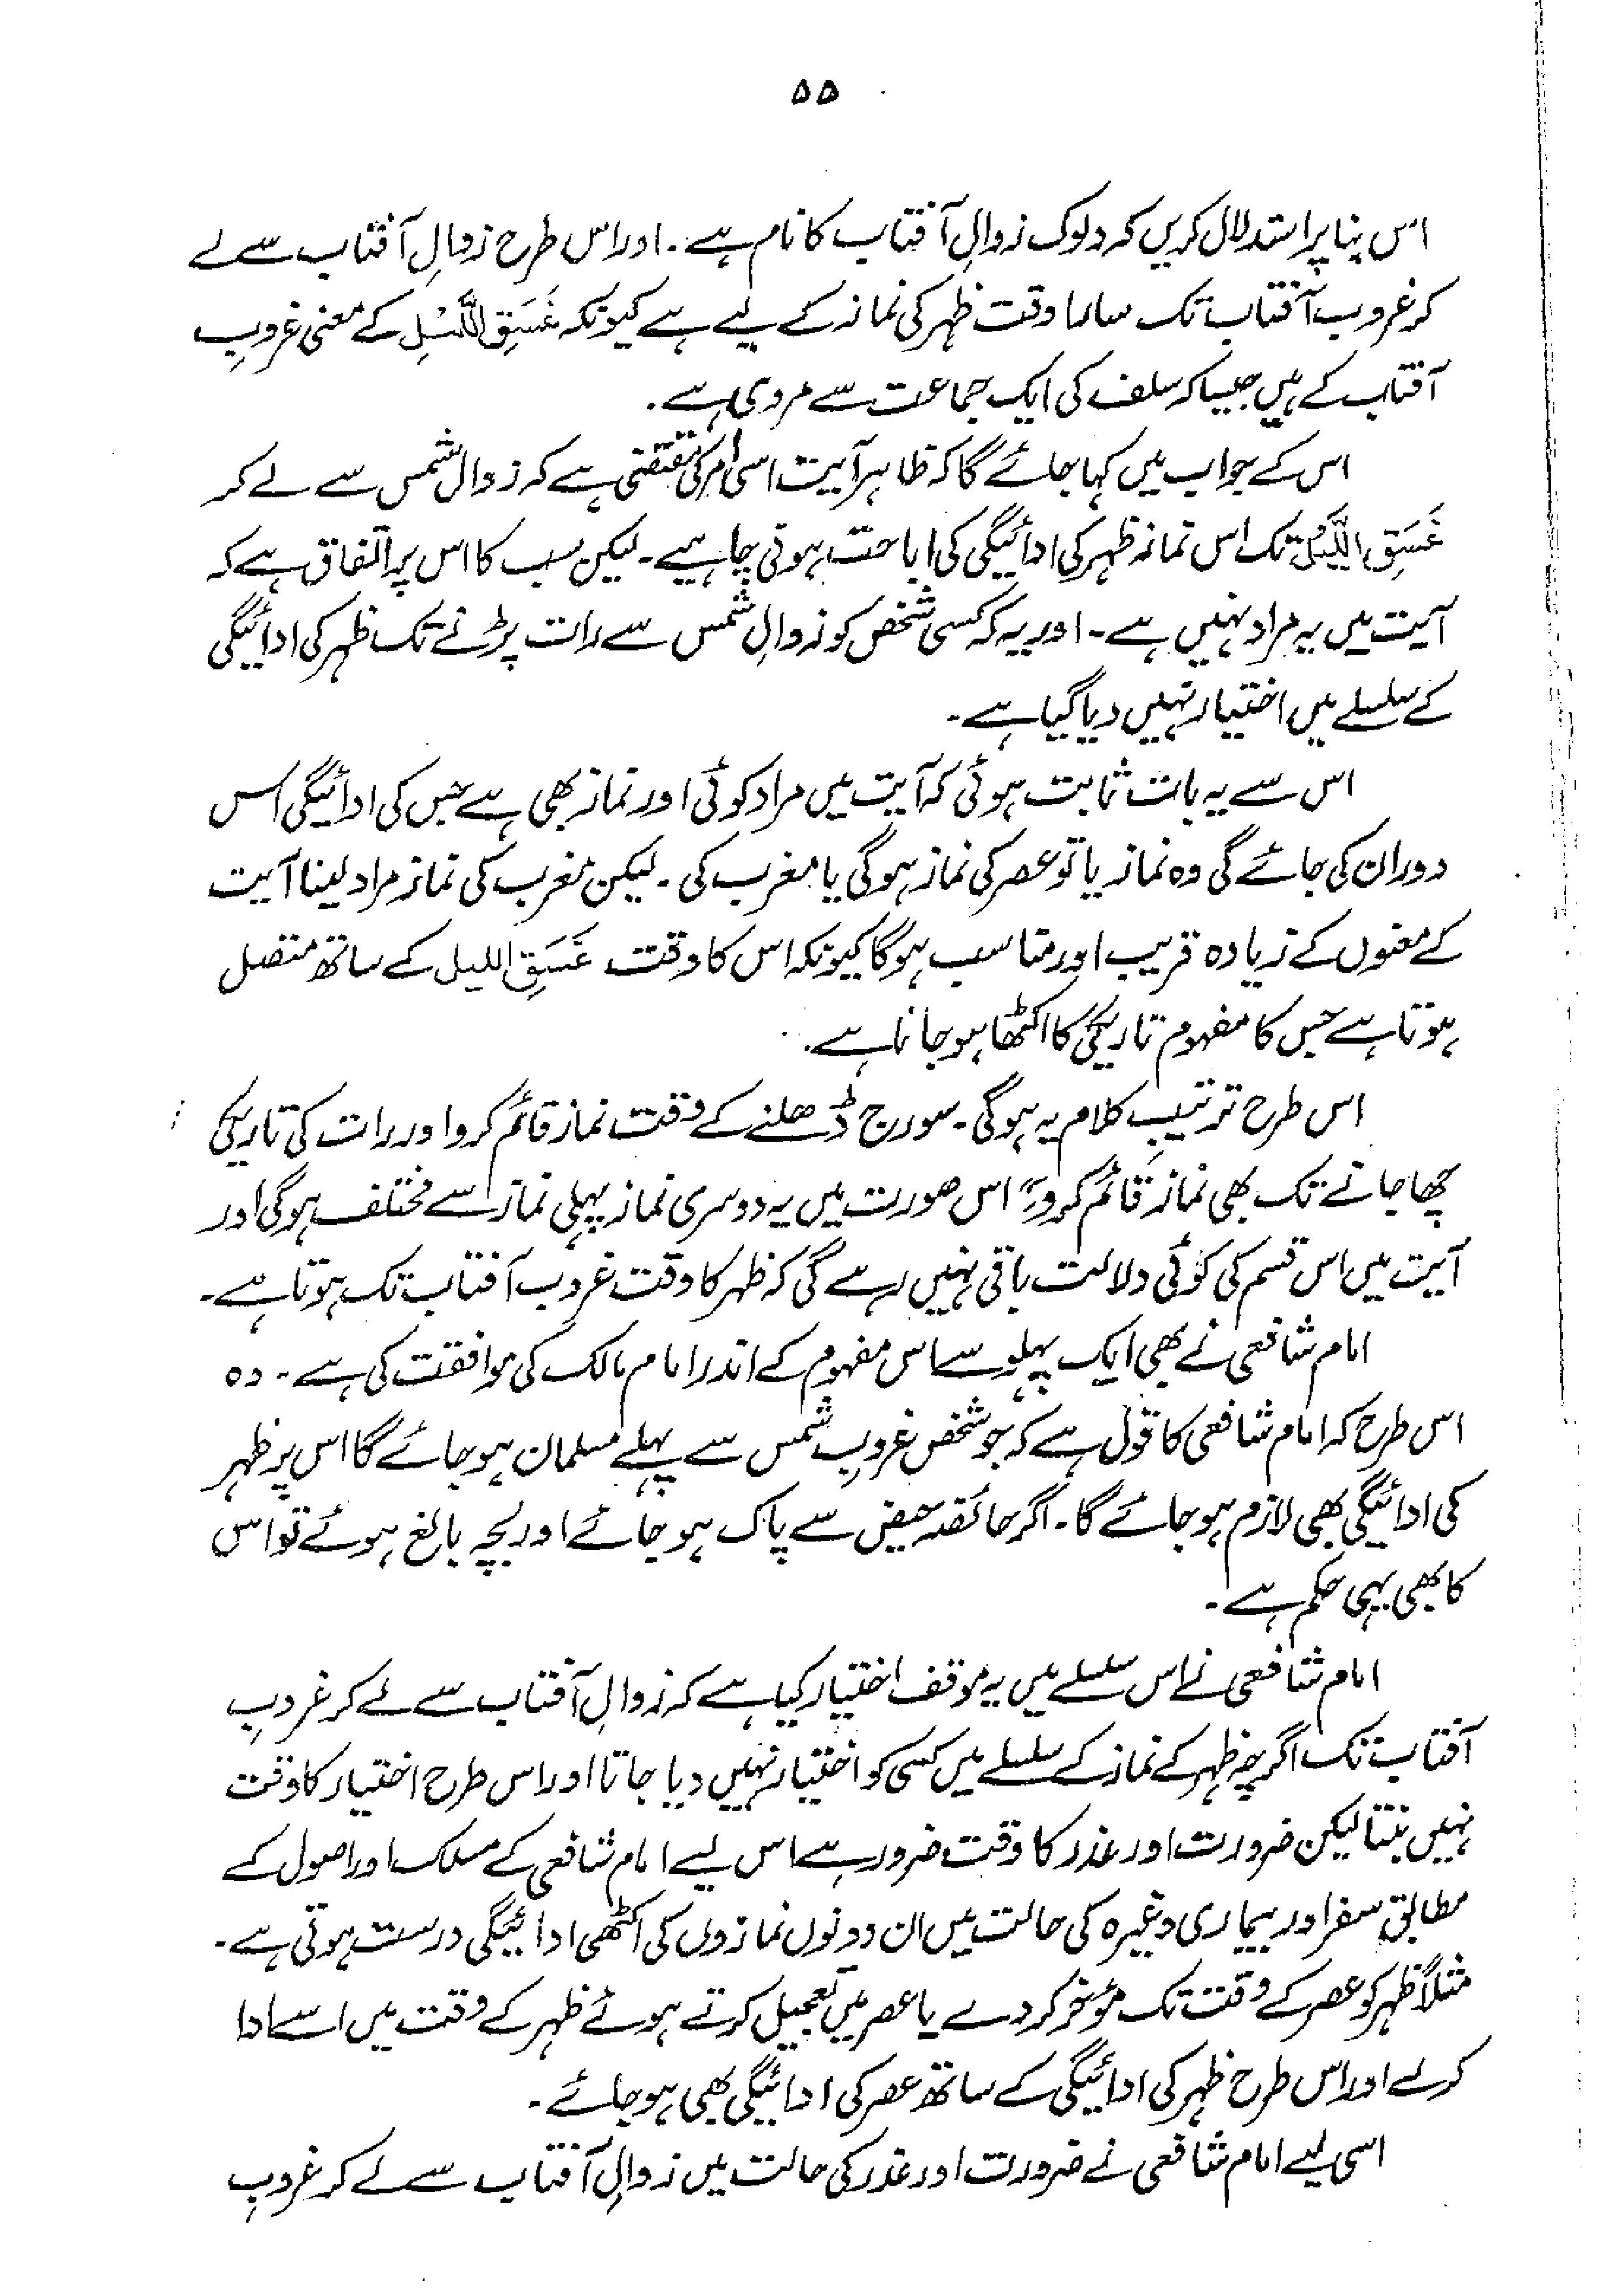 ۵۵
اس بنا پر استدلال کریں کہ دلوک زوالِ آفتاب کا نام ہے۔ اور اس طرح زوالِ آفتاب سے لے
کر غروب آفتاب تک سارا وقت ظہر کی نماز کے لیے ہے کیونکہ غَسَقِ اللَّیْلِ کے معنی غروبِ
آفتاب کے ہیں جیسا کہ سلف کی ایک جماعت سے مروی ہے۔
اس کے جواب میں کہا جائے گا کہ ظاہر آیت اسی امر کی مقتضی ہے کہ زوال شمس سے لے کر
غَسَقِ اللَّیْلِ تک اس نماز ظہر کی ادائیگی کی اباحت ہونی چاہیے۔ لیکن سب کا اس پر اتفاق ہے کہ
آیت میں یہ مراد نہیں ہے۔ اور یہ کہ کسی شخص کو زوالِ شمس سے رات پڑنے تک ظہر کی ادائیگی
کے سلسلے میں اختیار نہیں دیا گیا ہے۔
اس سے یہ بات ثابت ہوئی کہ آیت میں مراد کوئی اور نماز بھی ہے جس کی ادائیگی اس
دوران کی جائے گی وہ نماز یا تو عصر کی نماز ہوگی یا مغرب کی۔ لیکن مغرب کی نماز مراد لینا آیت
کے معنوں کے زیادہ قریب اور مناسب ہوگا کیونکہ اس کا وقت غَسَقِ اللیل کے ساتھ متصل
ہوتا ہے جس کا مفہوم تاریکی کا اکٹھا ہو جانا ہے۔
اس طرح ترتیبِ کلام یہ ہوگی۔ سورج ڈھلنے کے وقت نماز قائم کرو اور رات کی تاریکی
چھا جانے تک بھی نماز قائم کرو" اس صورت میں یہ دوسری نماز پہلی نماز سے مختلف ہوگی اور
آیت میں اس قسم کی کوئی دلالت باقی نہیں رہے گی کہ ظہر کا وقت غروب آفتاب تک ہوتا ہے۔
امام شافعی نے بھی ایک پہلو سے اس مفہوم کے اندر امام مالک کی موافقت کی ہے۔ وہ
اس طرح کہ امام شافعی کا قول ہے کہ جو شخص غروبِ شمس سے پہلے مسلمان ہو جائے گا اس پر ظہر
کی ادائیگی بھی لازم ہو جائے گا۔ اگر حائضہ حیض سے پاک ہو جائے اور بچہ بالغ ہوئے تو اس
کا بھی یہی حکم ہے۔
امام شافعی نے اس سلسلے میں یہ موقف اختیار کیا ہے کہ زوالِ آفتاب سے لے کر غروبِ
آفتاب تک اگرچہ ظہر کے نماز کے سلسلے میں کسی کو اختیار نہیں دیا جاتا اور اس طرح اختیار کا وقت
نہیں بنتا لیکن ضرورت اور عذر کا وقت ضرور ہے اس لیے امام شافعی کے مسلک اور اصول کے
مطابق سفر اور بیماری وغیرہ کی حالت میں ان دونوں نمازوں کی اکٹھی ادائیگی درست ہوتی ہے۔
مثلاً ظہر کو عصر کے وقت تک مؤخر کر دے یا عصر میں تعجیل کرتے ہوئے ظہر کے وقت میں اسے ادا
کر لے اور اس طرح ظہر کی ادائیگی کے ساتھ عصر کی ادائیگی بھی ہو جائے۔
اسی لیے امام شافعی نے ضرورت اور عذر کی حالت میں زوالِ آفتاب سے لے کر غروبِ